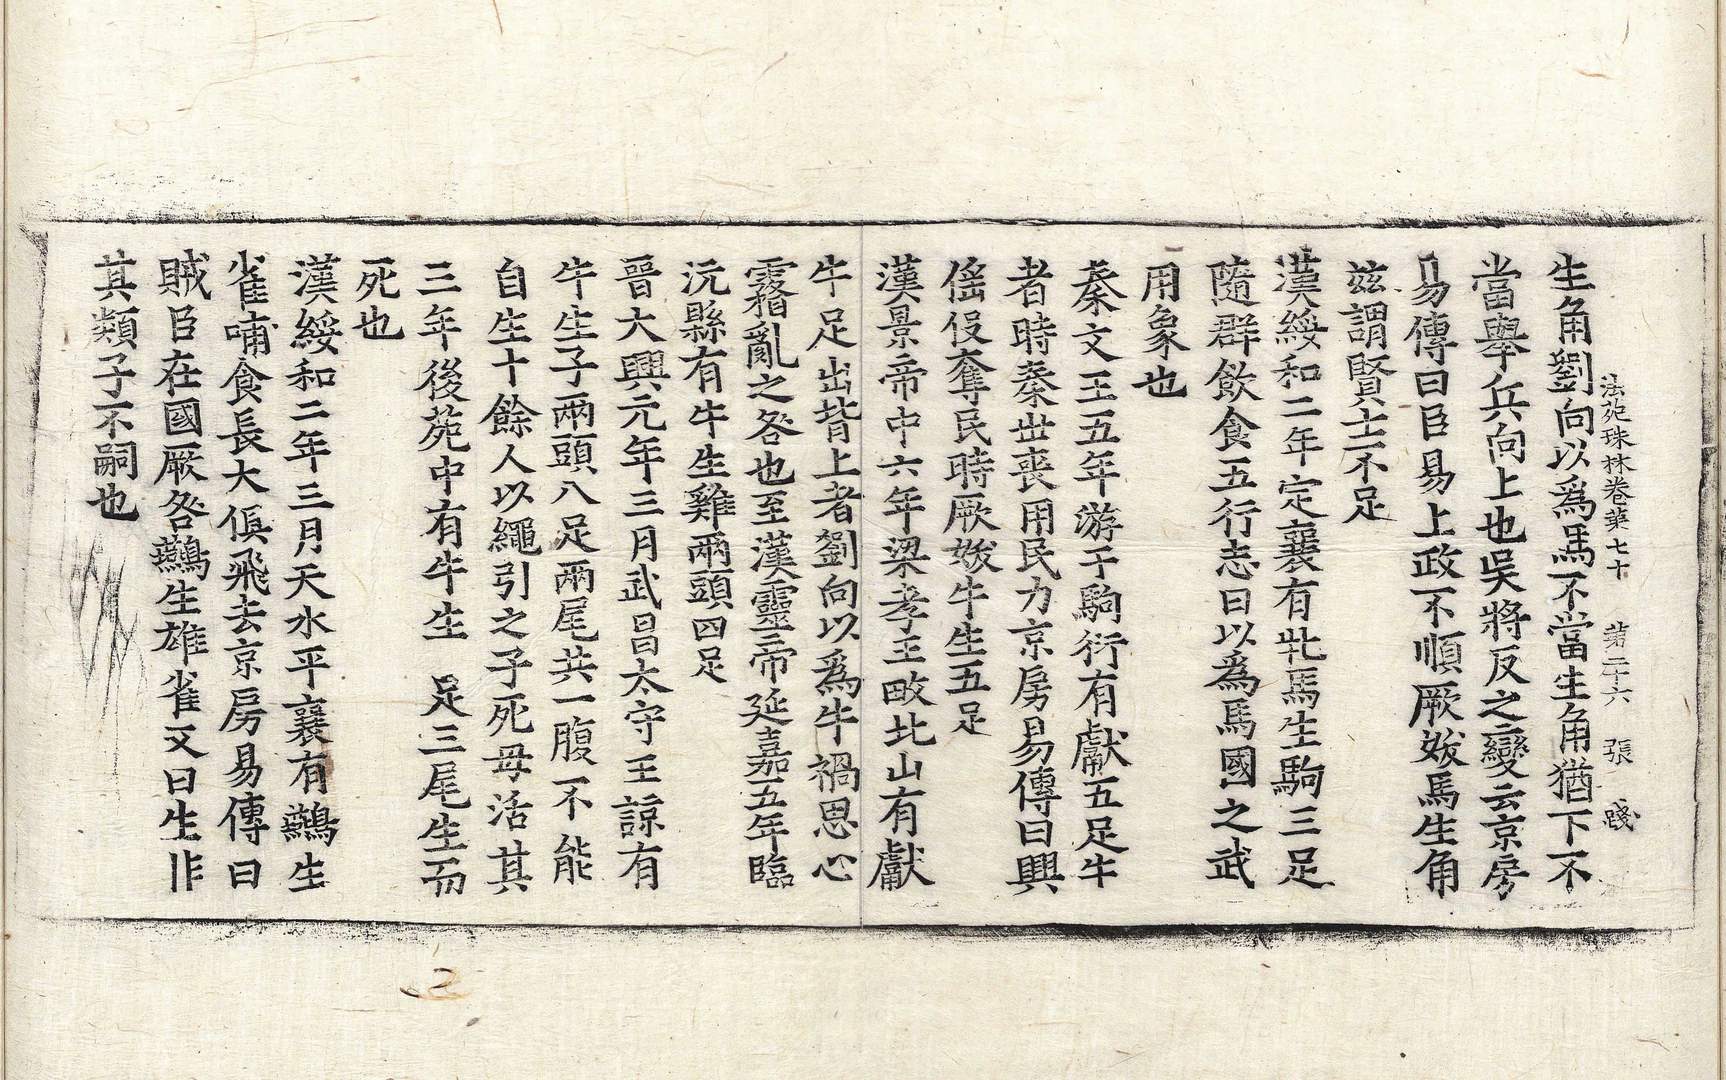 法苑珠林卷第七十 第二十六 張
生角劉向以爲馬不當生角猶下不
當舉兵向上也吳將反之變云京房
易傳曰臣易上政不順厥妖馬生角
茲謂賢士不足
漢綏和二年定襄有牝馬生駒三足
隨群飲食五行志曰以爲馬國之武
用象也
秦文王五年游于駒衍有獻五足牛
者時秦世喪用民力京房易傳曰興
傜伇奪民時厥妖牛生五足
漢景帝中六年梁孝王畋北山有獻
牛足出背上者劉向以爲牛禍思心
霿亂之咎也至漢靈帝延嘉五年臨
沅縣有牛生雞兩頭四足
晉大興元年三月武昌太守王諒有
牛生子兩頭八足兩尾共一腹不能
自生十餘人以繩引之子死母活其
三年後苑中有牛生 足三尾生而
死也
漢綏和二年三月天水平襄有鷰生
雀哺食長大俱飛去京房易傳曰
賊臣在國厥咎鷰生雄雀又曰生非
其類子不嗣也